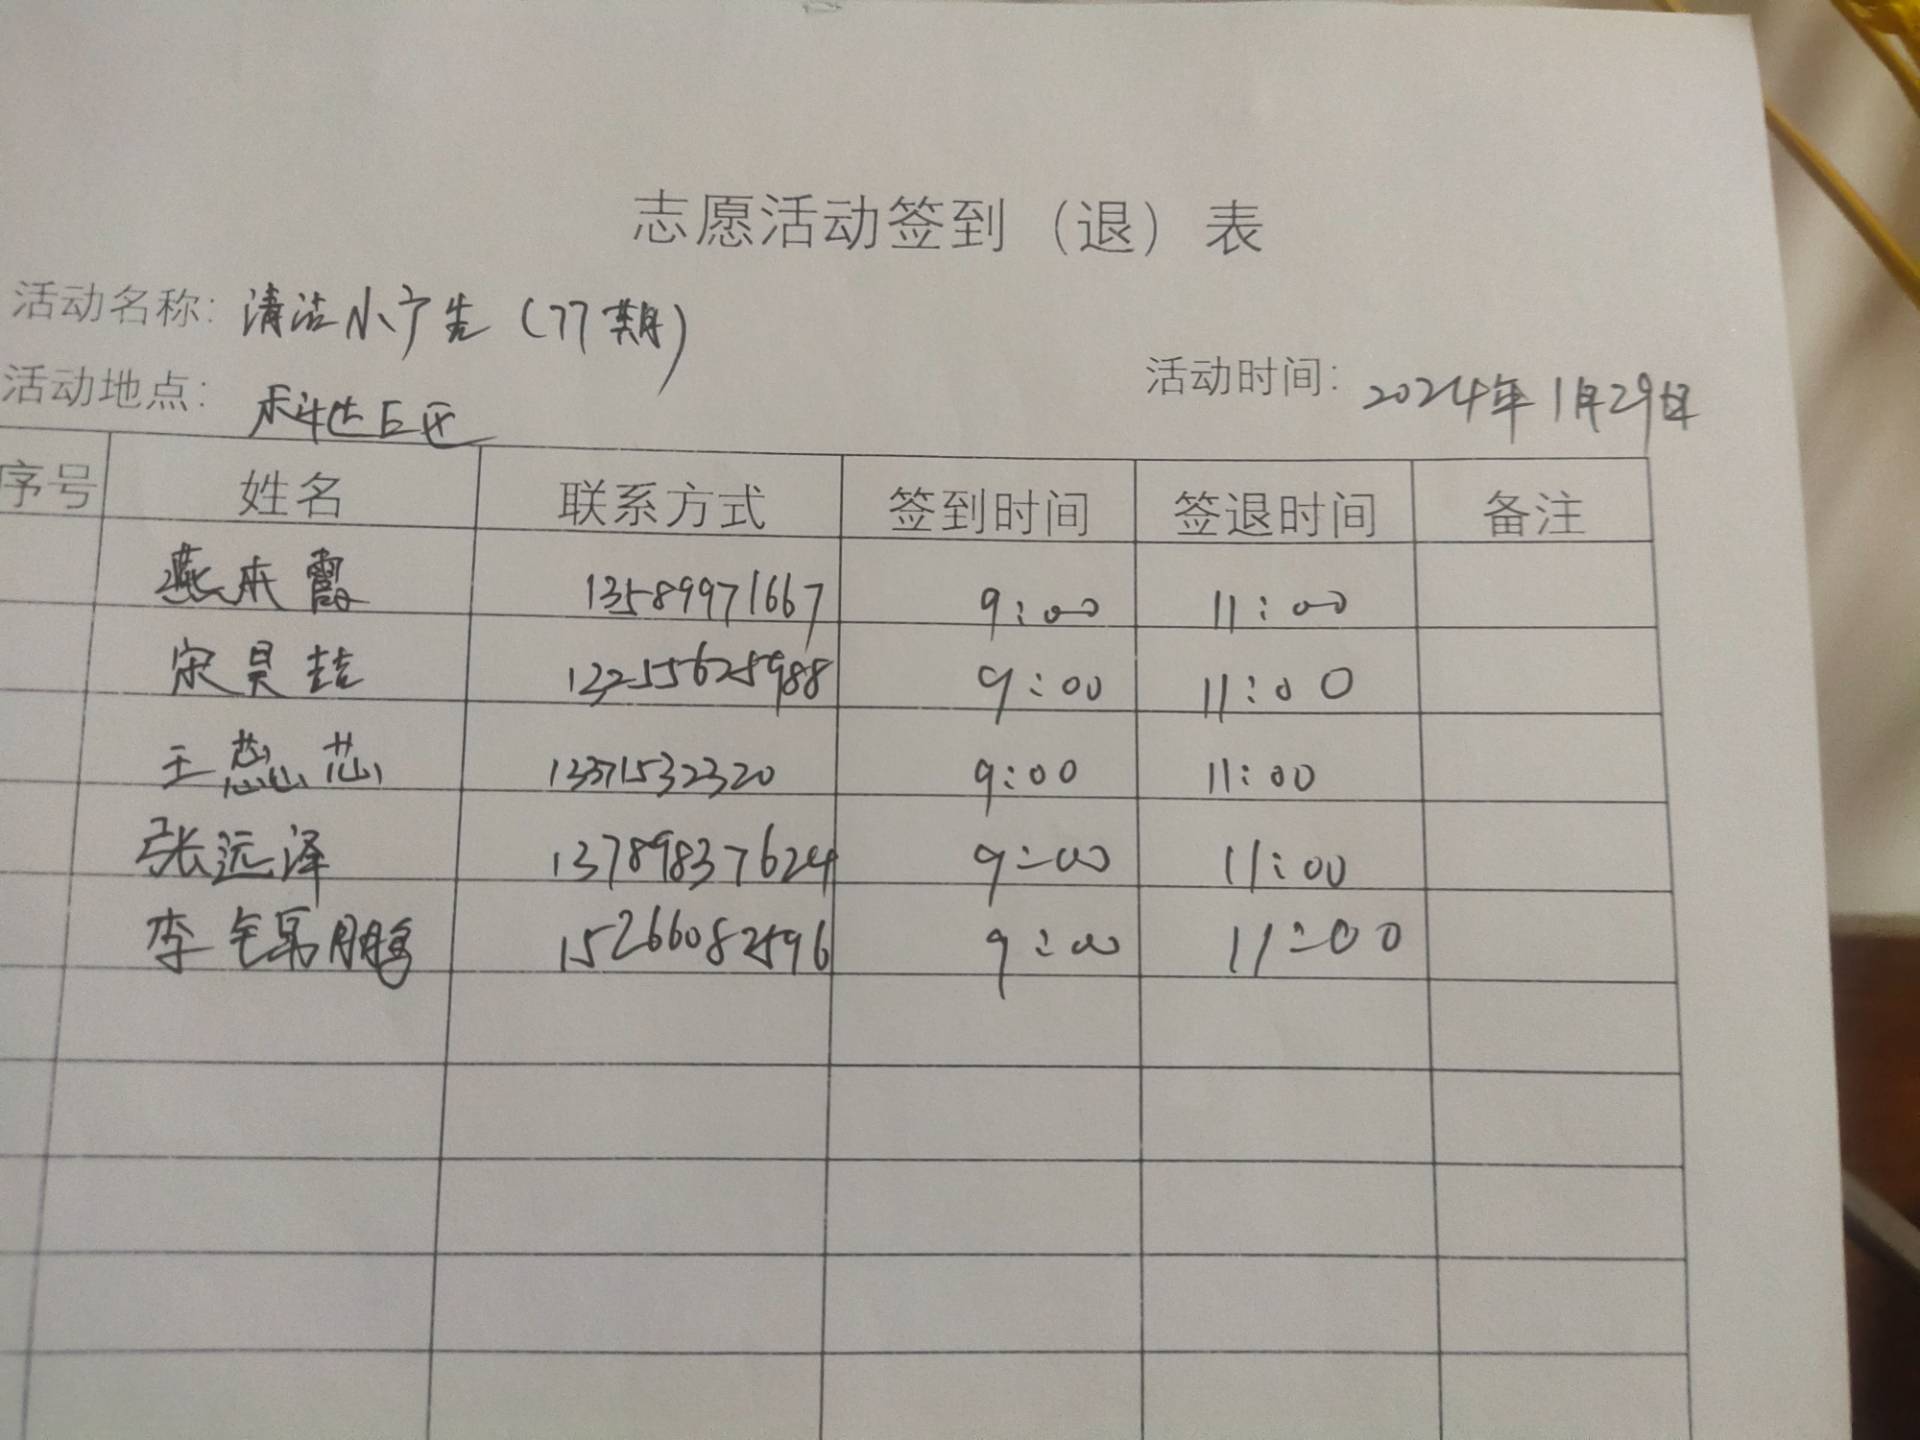 志愿活动签到（退）表
活动名称: 清洁小广告 (77期)
活动地点:
活动时间: 2024年1月29日
序号 姓名 联系方式 签到时间 签退时间 备注
燕本霞 13589971667 9:00 11:00
宋昊喆 13255625988 9:00 11:00
王蕊芯 13371532320 9:00 11:00
张远泽 13789837624 9:00 11:00
李 鹏 15266082596 9:00 11:00